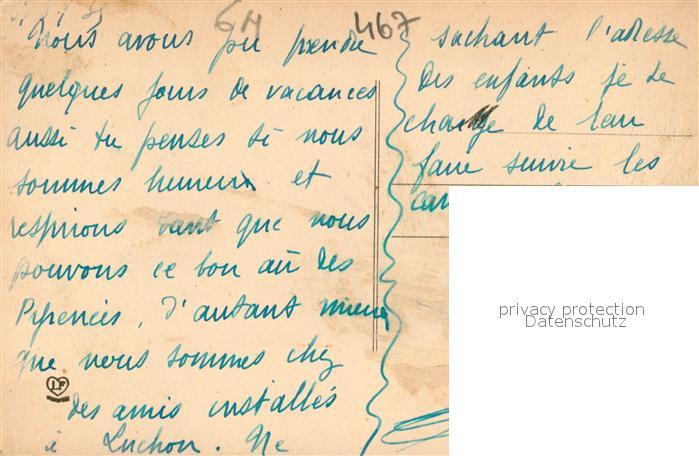 6M
467
Nous avons pu prendre
quelques jours de vacances
aussi tu penses si nous
sommes heureux et
respirons tant que nous
pouvons ce bon air des
Pyrenées, d'autant mieux
que nous sommes chez
des amis installés
à Luchon. Ne
sachant l'adresse
des enfants je te
charge de leur
faire suivre les
LF
privacy protection
Datenschutz